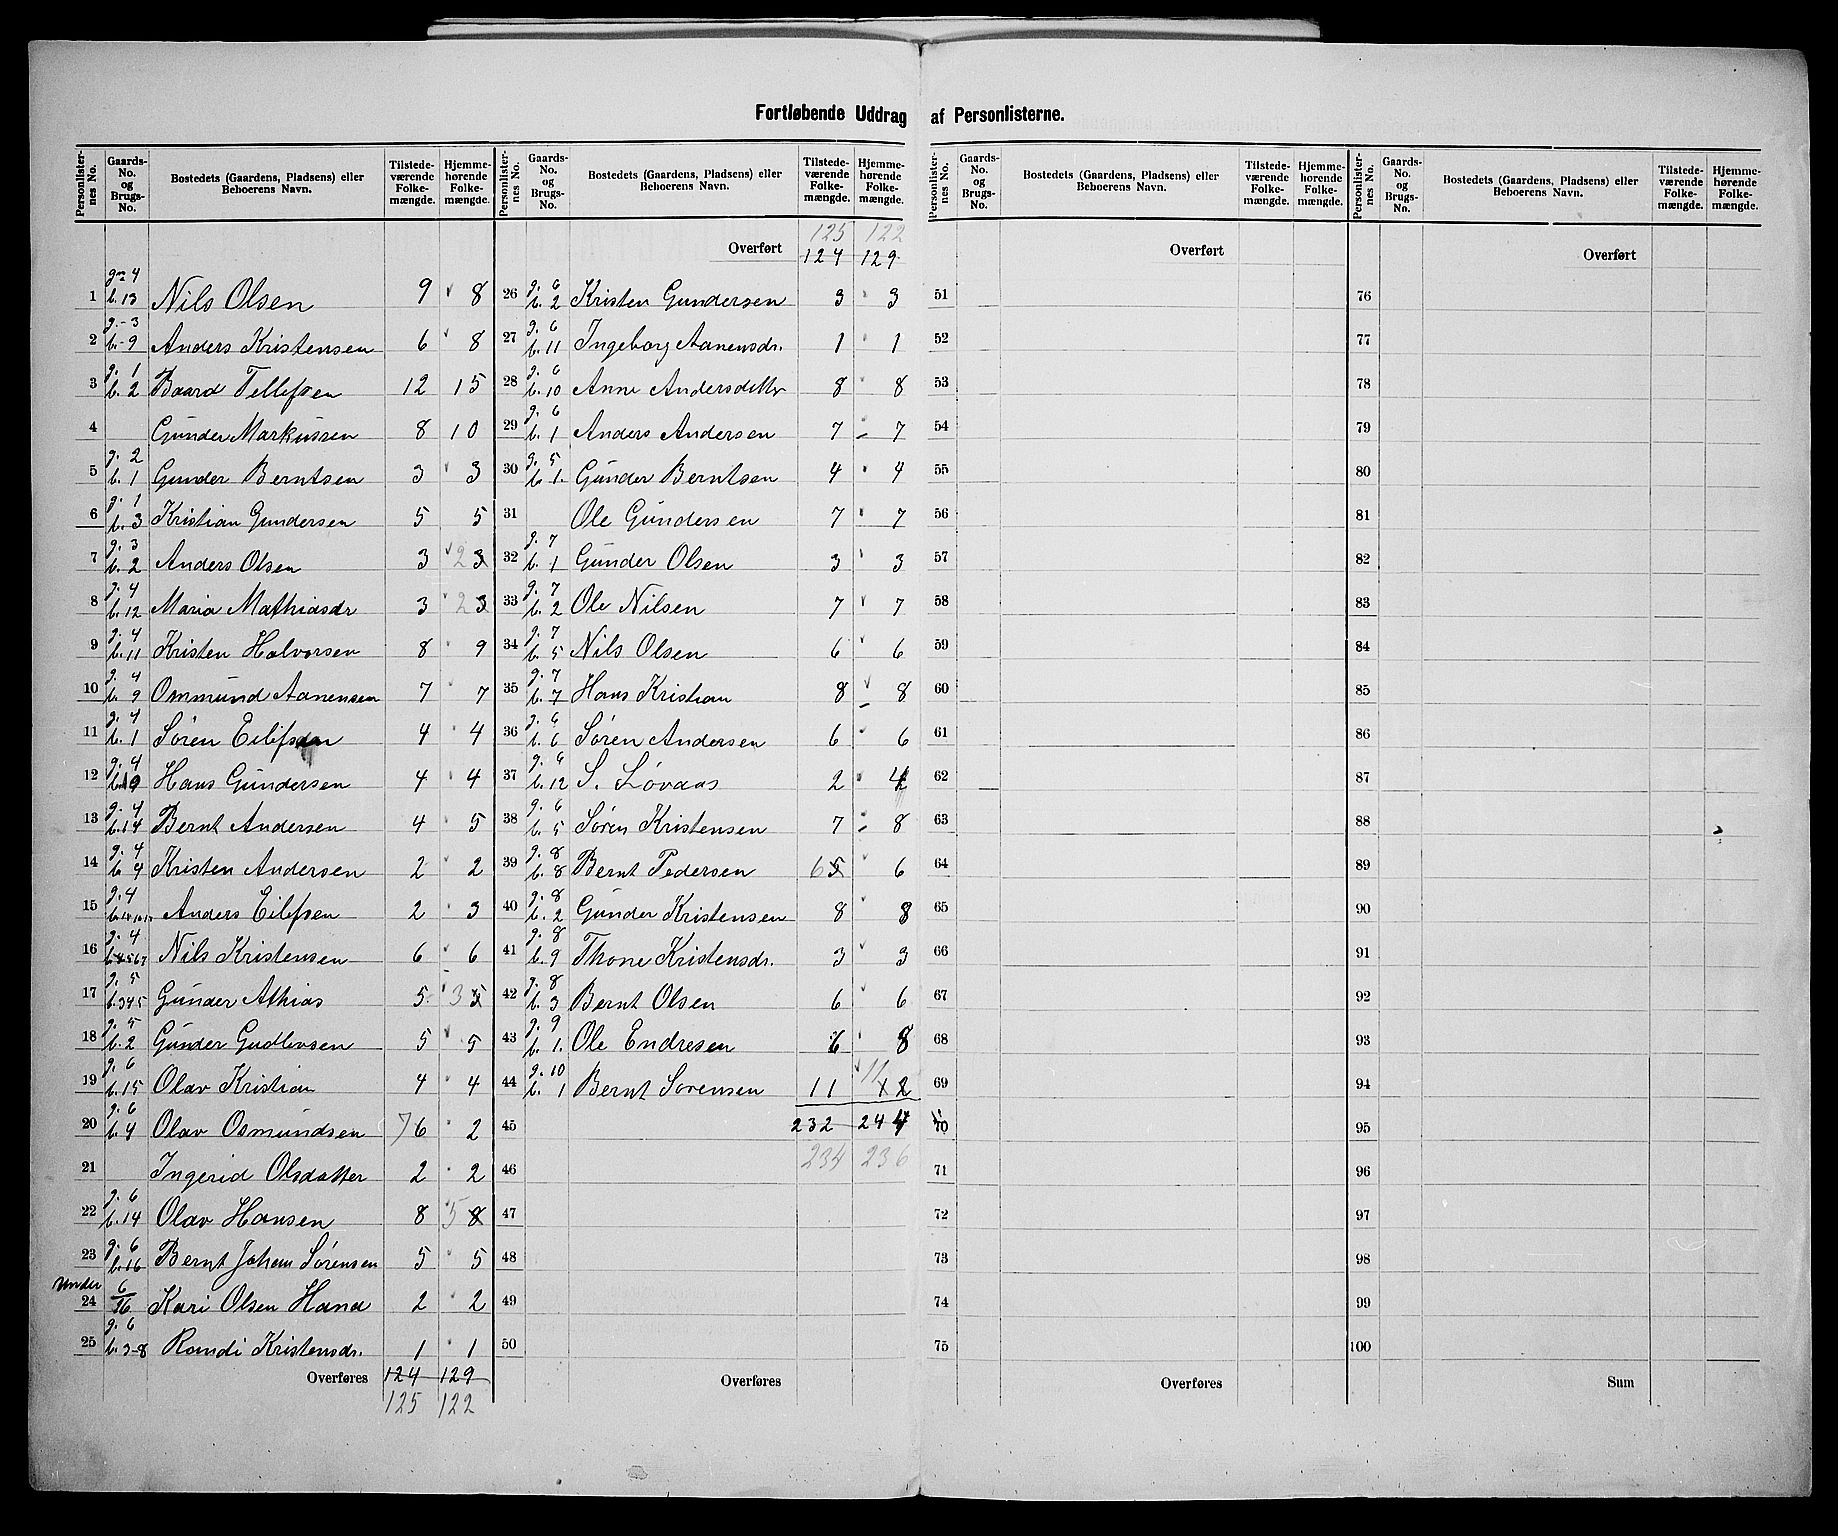 Fortløbende Uddrag af Personlisterne.
Personlister-nes No. | Gaards-No. og Brugs-No. | Bostedets (Gaardens, Pladsens) eller Beboerens Navn. | Tilstede-værende Folke-mængde. | Hjemme-hørende Folke-mængde.
1 | g. 4 b. 13 | Nils Olsen | 9 | 8
2 | g. 3 b. 9 | Anders Kristensen | 6 | 8
3 | g. 1 b. 2 | Baard Tellefsen | 12 | 15
4 | Gunder Markussen | 8 | 10
5 | g. 2 b. 1 | Gunder Berntsen | 3 | 3
6 | g. 1 b. 3 | Kristian Gundersen | 5 | 5
7 | g. 3 b. 2 | Anders Olsen | 3 | 2 3
8 | g. 4 b. 12 | Maria Mathiasdr | 3 | 2 3
9 | g. 4 b. 11 | Kristen Halvorsen | 8 | 9
10 | g. 4 b. 9 | Ommund Aanensen | 7 | 7
11 | g. 4 b. 1 | Søren Eilefsen | 4 | 4
12 | g. 4 b. 19 | Hans Gundersen | 4 | 4
13 | g. 4 b. 14 | Bernt Andersen | 4 | 5
14 | g. 4 b. 4 | Kristen Andersen | 2 | 2
15 | g. 4 | Anders Eilefsen | 2 | 3
16 | g. 4 | Nils Kristensen | 6 | 6
17 | g. 5 b. 3 4 5 | Gunder Athias | 5 | 3 5
18 | g. 5 b. 2 | Gunder Gudlevsen | 5 | 5
19 | g. 6 b. 15 | Olav Kristian | 4 | 4
20 | g. 6 b. 4 | Olav Osmundsen | 7 6 | 2
21 | Ingerid Olsdatter | 2 | 2
22 | g. 6 b. 14 | Olav Hansen | 8 | 5 8
23 | g. 6 b. 16 | Bernt Johan Sørensen | 5 | 5
Under
24 | 6/16 | Kari Olsen Hana | 2 | 2
25 | g. 6 b. 3-8 | Randi Kristensdr. | 1 | 1
Overføres | 124 | 129
125 | 122
Personlister-nes No. | Gaards-No. og Brugs-No. | Bostedets (Gaardens, Pladsens) eller Beboerens Navn. | Tilstede-værende Folke-mængde. | Hjemme-hørende Folke-mængde.
125 | 122
Overført | 124 | 129
26 | g. 6 b. 2 | Kristen Gundersen | 3 | 3
27 | g. 6 b. 11 | Ingeborg Aanensdr. | 1 | 1
28 | g. 6 b. 10 | Anne Andersdatter | 8 | 8
29 | g. 6 b. 1 | Anders Andersen | 7 | 7
30 | g. 5 b. 1. | Gunder Berntsen | 4 | 4
31 | Ole Gundersen | 7 | 7
32 | g. 7 b. 1 | Gunder Olsen | 3 | 3
33 | g. 7 b. 2 | Ole Nilsen | 7 | 7
34 | g. 7 b. 5 | Nils Olsen | 6 | 6
35 | g. 7 b. 7 | Hans Kristian | 8 | 8
36 | g. 6 b. 6 | Søren Andersen | 6 | 6
37 | g. 6 b. 12 | S. Løvaas | 2 | 4
38 | g. 6 b. 5 | Søren Kristensen | 7 | 8
39 | g. 8 b. 8 | Bernt Pedersen | 6 5 | 6
40 | g. 8 b. 2 | Gunder Kristensen | 8 | 8
41 | g. 8 b. 9 | Thone Kristensdr. | 3 | 3
42 | g. 8 b. 3 | Bernt Olsen | 6 | 6
43 | g. 9 b. 1. | Ole Endresen | 6 | 8
44 | g. 10 b. 1 | Bernt Sørensen | 11 | 11 12
45 | 232 | 244
46 | 234 | 236
47
48
49
50
Overføres
Personlister-nes No. | Gaards-No. og Brugs-No. | Bostedets (Gaardens, Pladsens) eller Beboerens Navn. | Tilstede-værende Folke-mængde. | Hjemme-hørende Folke-mængde.
Overført
51
52
53
54
55
56
57
58
59
60
61
62
63
64
65
66
67
68
69
70
71
72
73
74
75
Overføres
Personlister-nes No. | Gaards-No. og Brugs-No. | Bostedets (Gaardens, Pladsens) eller Beboerens Navn. | Tilstede-værende Folke-mængde. | Hjemme-hørende Folke-mængde.
Overført
76
77
78
79
80
81
82
83
84
85
86
87
88
89
90
91
92
93
94
95
96
97
98
99
100
Sum